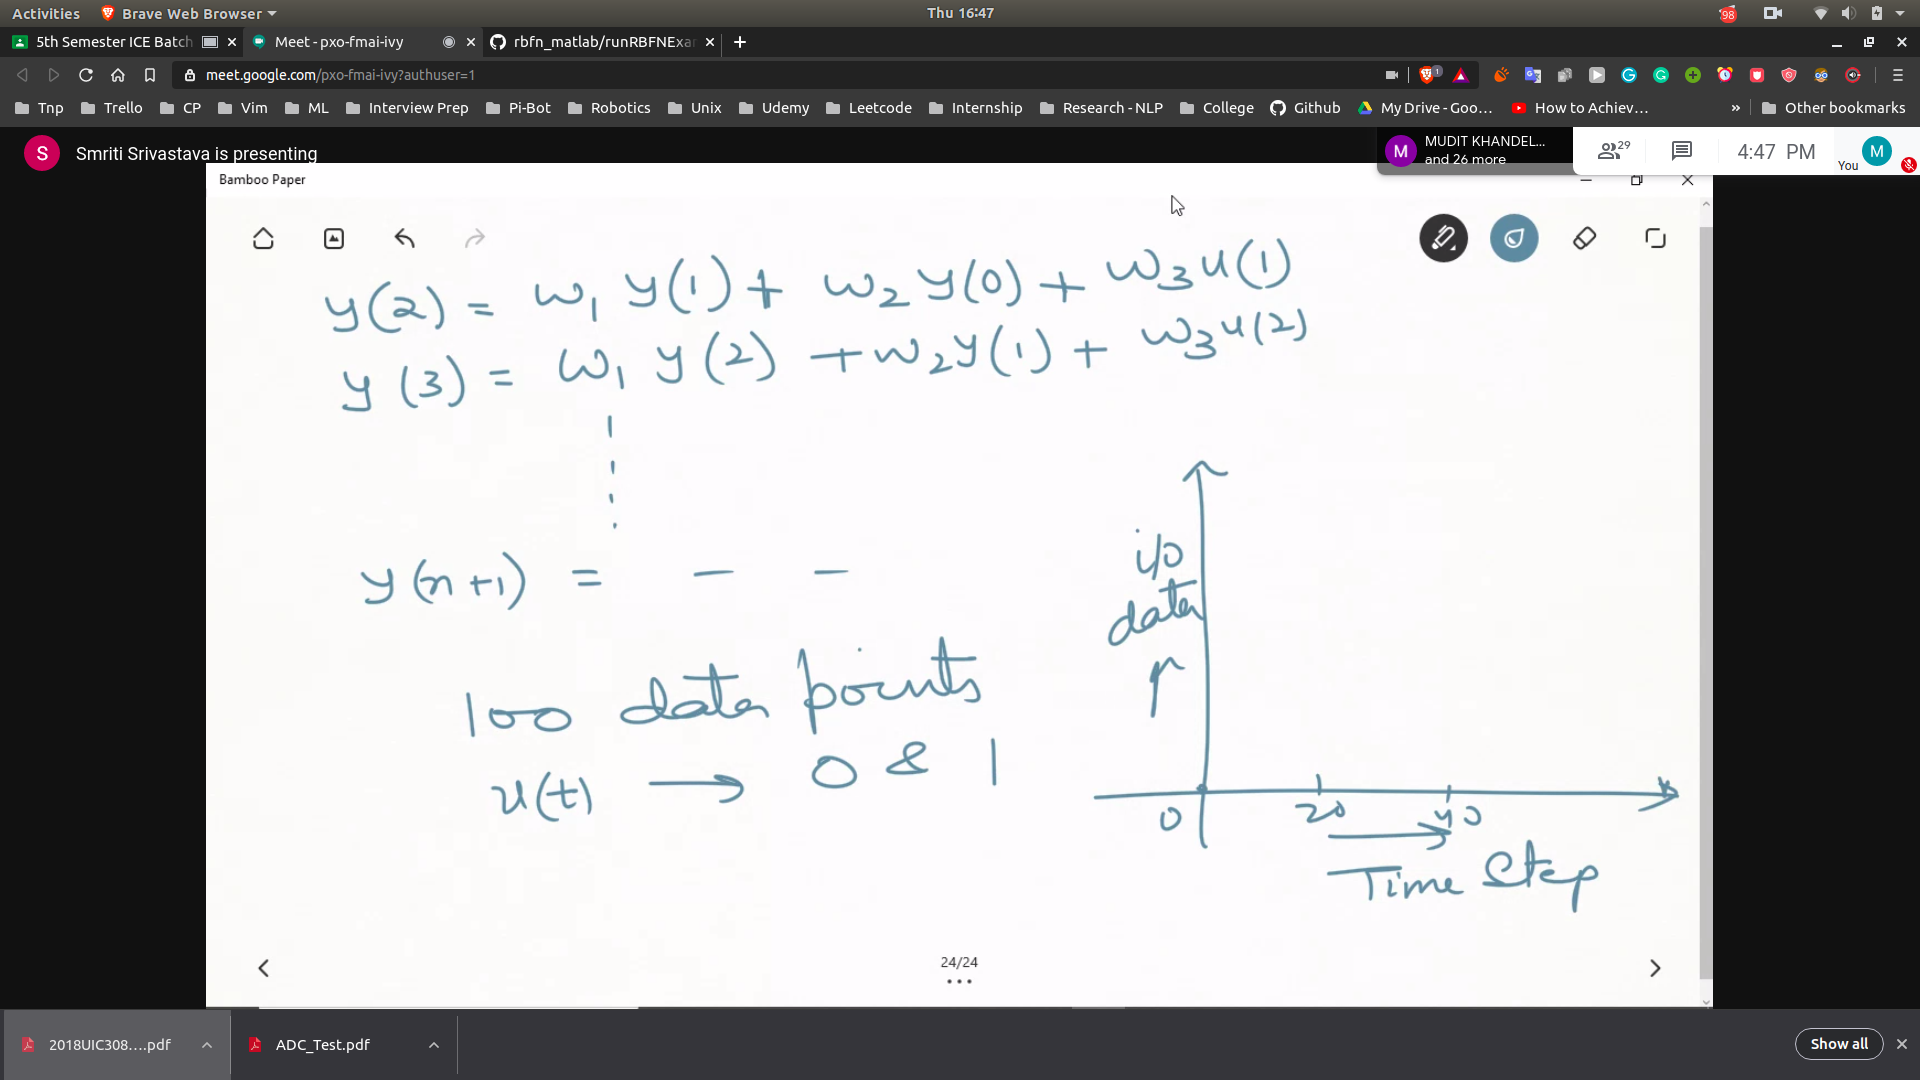 Activities Brave Web Browser Thu 16:47 98
5th Semester ICE Batch Meet - pxo-fmai-ivy rbfn_matlab/runRBFNExa
meet.google.com/pxo-fmai-ivy?authuser=1 1
Tnp Trello CP Vim ML Interview Prep Pi-Bot Robotics Unix Udemy Leetcode Internship Research - NLP College Github My Drive - Goo… How to Achiev… » Other bookmarks
S Smriti Srivastava is presenting
M MUDIT KHANDEL...
and 26 more
29 4:47 PM You M
Bamboo Paper
y(2) = w₁ y(1) + w₂ y(0) + w₃ u(1)
y(3) = w₁ y(2) + w₂ y(1) + w₃ u(2)
y(n+1) = — —
100 data points
u(t) → 0 & 1
i/o
data
0 20 40
Time Step
24/24
2018UIC308....pdf ADC_Test.pdf Show all